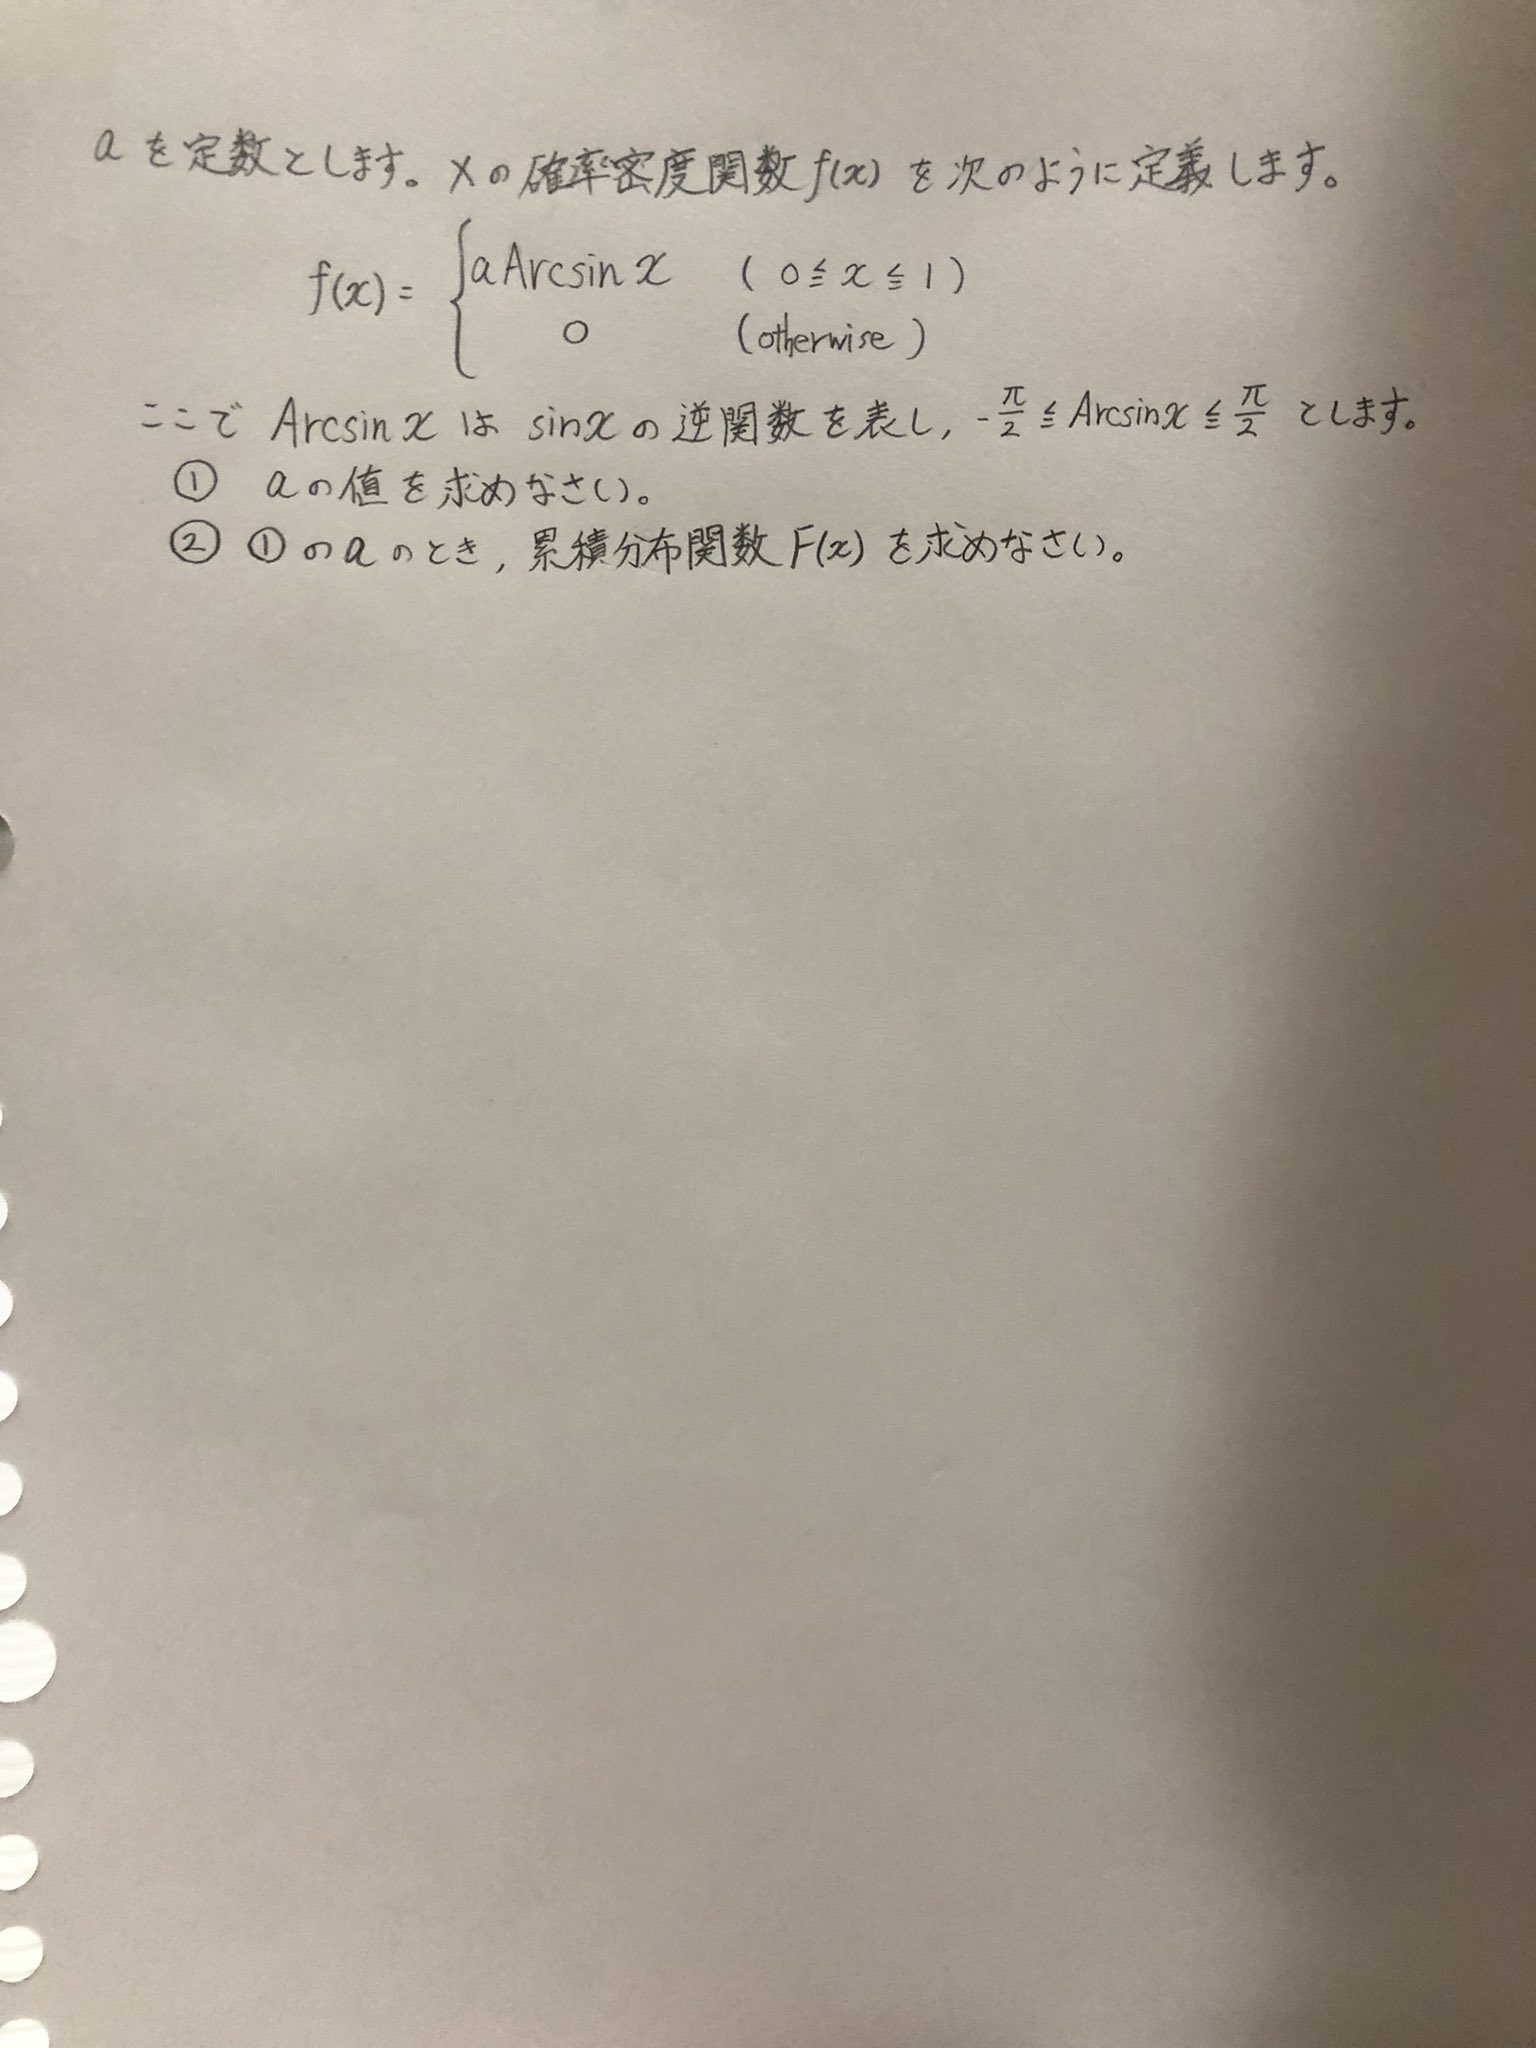 aを定数とします。Xの確率密度関数f(x)を次のように定義します。
f(x) = { a Arcsin x (0 ≦ x ≦ 1)
0 (otherwise)
ここで Arcsin x は sinx の逆関数を表し, -π/2 ≦ Arcsinx ≦ π/2 とします。
① aの値を求めなさい。
② ①のaのとき, 累積分布関数F(x)を求めなさい。